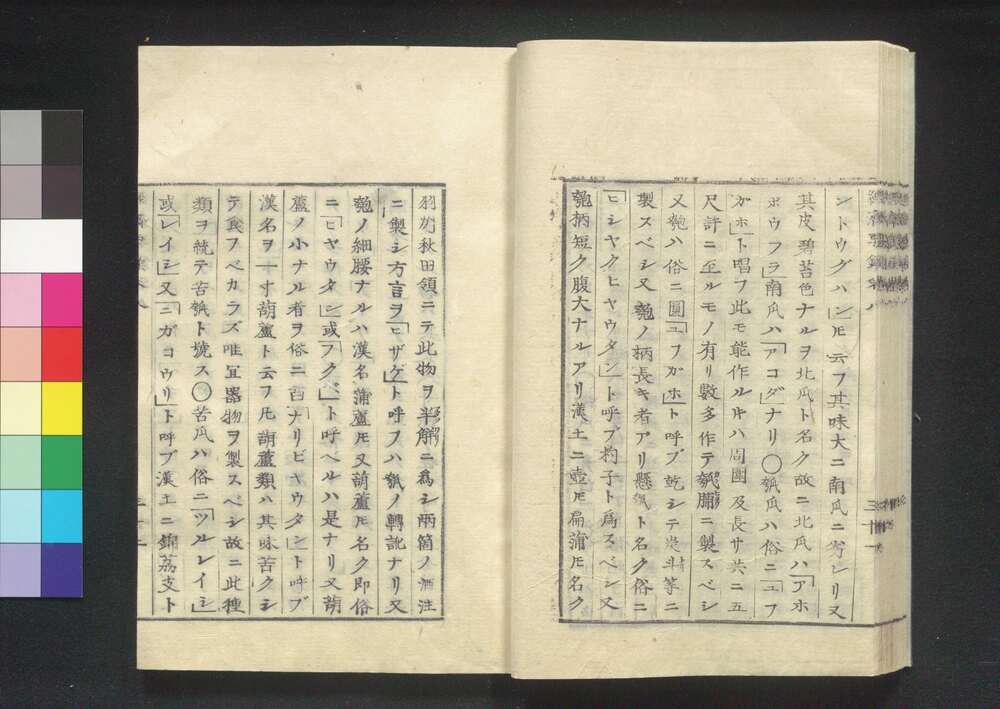 ントウグハン」𪜈云フ其味大ニ南瓜ニ劣レリ又
其皮碧苔色ナルヲ北瓜ト名ク故ニ北瓜ハ「アホ
ボウフラ」南瓜ハ「アコダ」ナリ〇瓠瓜ハ俗ニ「ユフ
ガホ」ト唱フ此モ能作ルキハ周圍及長サ共ニ五
尺許ニ至ルモノ有リ數多作テ瓠脯ニ製スベシ
又匏ハ俗ニ圓「ユフガホ」ト呼ブ乾シテ炭斗等ニ
製スベシ又匏ノ柄長キ者アリ懸瓠ト名ク俗ニ
「ヒシヤクヒヤウタン」ト呼ブ杓子ト爲スベシ又
匏柄短ク腹大ナルアリ漢土ニ壺𪜈扁蒲𪜈名ク
羽州秋田領ニテ此物ヲ半解ニ爲シ兩箇ノ酒注
ニ製シ方言ヲ「ヒザゲ」ト呼フハ瓠ノ轉訛ナリ又
匏ノ細腰ナルハ漢名蒲蘆𪜈又葫蘆𪜈名ク即俗
ニ「ヒヤウタン」或「フクベ」ト呼ベルハ是ナリ又葫
蘆ノ小ナル者ヲ俗ニ百「ナリビヤウタン」ト呼ブ
漢名ヲ一寸葫蘆ト云フ𪜈葫蘆類ハ其味苦クシ
テ食フベカラズ唯宜器物ヲ製スベシ故ニ此種
類ヲ統テ苦瓠ト號ス〇苦瓜ハ俗ニ「ツルレイシ」
或「レイシ」又「ニガコウリ」ト呼ブ漢土ニ錦荔支ト